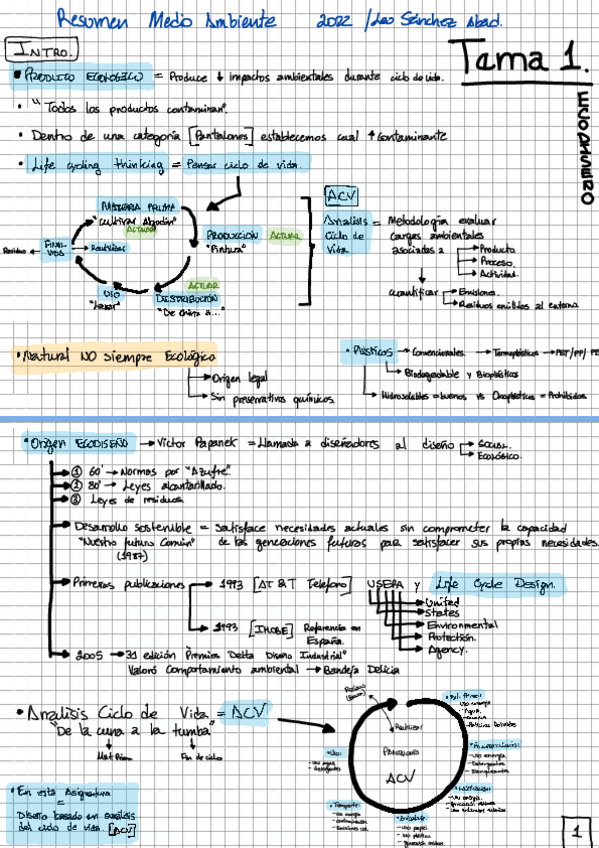 Resumen Medio Ambiente 2022 / Leo Sánchez Abad.
INTRO.
Tema 1.
ECODISEÑO
• PRODUCTO ECOLÓGICO = Produce ↓ impactos ambientales durante ciclo de vida.
• "Todos los productos contaminan".
• Dentro de una categoría [Pantalones] establecemos cual ↑ contaminante
• Life cycling thinking = Pensar ciclo de vida
MATERIA PRIMA
"cultivar Algodón"
ACTUAR
PRODUCCIÓN ACTUAR
"Pintura"
ACTUAR
DISTRIBUCIÓN
"De China a..."
USO
"Lavar"
FINAL VIDA
Residuo
Reutilizar
ACV
Análisis Ciclo de Vida = Metodología evaluar
cargas ambientales
asociadas a → Producto
→ Proceso.
→ Actividad.
cuantificar → Emisiones.
→ Residuos emitidos al entorno
• Natural NO siempre Ecológico
→ Origen legal
→ Sin preservativos químicos.
• Plásticos → Convencionales → Termoplásticos → PET/PP/PE
→ Biodegradable y Bioplástico
→ Hidrosolubles = buenos vs Oxoplásticos = Prohibidos
• Origen ECODISEÑO → Victor Papanek = Llamada a diseñadores al diseño → SOCIAL.
→ ECOLÓGICO.
① 60' → Normas por "Azufre"
① 80' → Leyes alcantarillado.
② Leyes de residuos
→ Desarrollo sostenible = satisface necesidades actuales sin comprometer la capacidad
"Nuestro futuro Común" de las generaciones futuras para satisfacer sus propias necesidades.
(1987)
→ Primeras publicaciones → 1993 [AT&T Telefono] USEPA y Life Cycle Design.
United
States
Environmental
Protection.
Agency.
→ 1993 [IHOBE] Referencia en
España.
→ 2005 → 31 edición Premios Delta Diseño Industrial"
Valoró Comportamiento ambiental → Bandeja Delicia
• Análisis Ciclo de Vida = ACV
"De la cuna a la tumba"
Mat Prima
Fin de ciclo
Reciclar
PRODUCTO
ACV
• Mat. Prima:
- Uso energía
- Agua
• Procesamiento:
- Uso energía.
- Detergentes
- Blanqueantes
• Distribución:
- Uso energía.
• Embalaje:
- Uso papel
- Uso plástico
• Transporte:
- Uso energía
- Contaminación
• Uso:
- Uso agua
- Detergentes
• En esta Asignatura
=
Diseño basado en análisis
del ciclo de vida. [ACV]
1